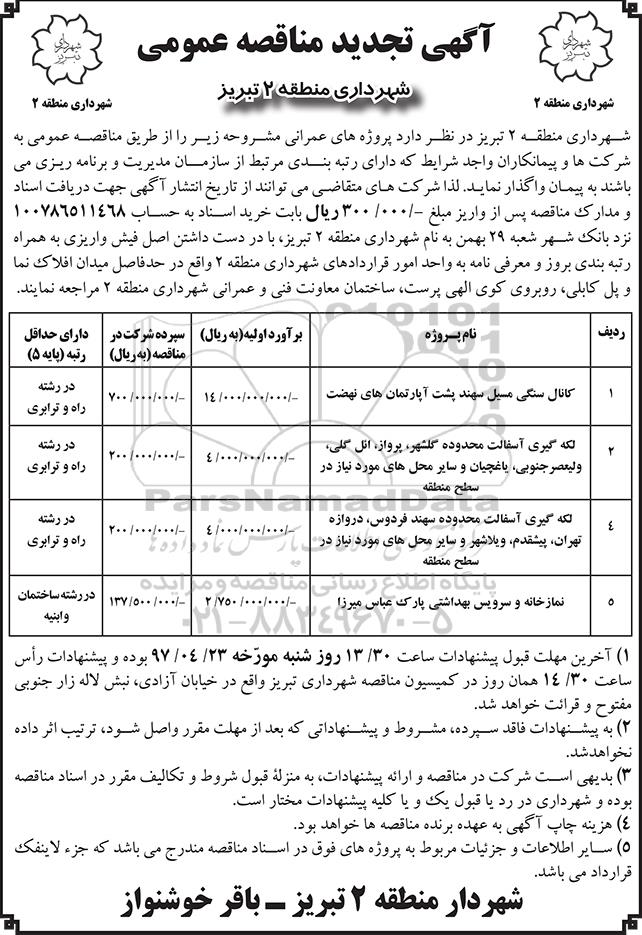 آگهی تجدید مناقصه عمومی
شهرداری منطقه ۲ تبریز
شهرداری تبریز
شهرداری منطقه ۲
شهرداری تبریز
شهرداری منطقه ۲
شهرداری منطقه ۲ تبریز در نظر دارد پروژه های عمرانی مشروحه زیر را از طریق مناقصه عمومی به
شرکت ها و پیمانکاران واجد شرایط که دارای رتبه بندی مرتبط از سازمان مدیریت و برنامه ریزی می
باشند به پیمان واگذار نماید. لذا شرکت های متقاضی می توانند از تاریخ انتشار آگهی جهت دریافت اسناد
و مدارک مناقصه پس از واریز مبلغ -/۳۰۰/۰۰۰ ریال بابت خرید اسناد به حساب ۱۰۰۷۸۶۵۱۱۴۶۸
نزد بانک شهر شعبه ۲۹ بهمن به نام شهرداری منطقه ۲ تبریز، با در دست داشتن اصل فیش واریزی به همراه
رتبه بندی بروز و معرفی نامه به واحد امور قراردادهای شهرداری منطقه ۲ واقع در حدفاصل میدان افلاک نما
و پل کابلی، روبروی کوی الهی پرست، ساختمان معاونت فنی و عمرانی شهرداری منطقه ۲ مراجعه نمایند.
ردیف | نام پروژه | برآورد اولیه (به ریال) | سپرده شرکت در مناقصه (به ریال) | دارای حداقل رتبه (پایه ۵)
۱ | کانال سنگی مسیل سهند پشت آپارتمان های نهضت | -/۱۴/۰۰۰/۰۰۰/۰۰۰ | -/۷۰۰/۰۰۰/۰۰۰ | در رشته راه و ترابری
۲ | لکه گیری آسفالت محدوده گلشهر، پرواز، ائل گلی، ولیعصرجنوبی، یاغچیان و سایر محل های مورد نیاز در سطح منطقه | -/۴/۰۰۰/۰۰۰/۰۰۰ | -/۲۰۰/۰۰۰/۰۰۰ | در رشته راه و ترابری
۴ | لکه گیری آسفالت محدوده سهند فردوس، دروازه تهران، پیشقدم، ویلاشهر و سایر محل های مورد نیاز در سطح منطقه | -/۴/۰۰۰/۰۰۰/۰۰۰ | -/۲۰۰/۰۰۰/۰۰۰ | در رشته راه و ترابری
۵ | نمازخانه و سرویس بهداشتی پارک عباس میرزا | -/۲/۷۵۰/۰۰۰/۰۰۰ | -/۱۳۷/۵۰۰/۰۰۰ | در رشته ساختمان وابنیه
ParsNamadData
پایگاه اطلاع رسانی مناقصه و مزایده
۰۲۱-۸۸۳۴۹۶۷۰-۵
۱) آخرین مهلت قبول پیشنهادات ساعت ۱۳/۳۰ روز شنبه مورّخه ۹۷/۰۴/۲۳ بوده و پیشنهادات رأس
ساعت ۱۴/۳۰ همان روز در کمیسیون مناقصه شهرداری تبریز واقع در خیابان آزادی، نبش لاله زار جنوبی
مفتوح و قرائت خواهد شد.
۲) به پیشنهادات فاقد سپرده، مشروط و پیشنهاداتی که بعد از مهلت مقرر واصل شود، ترتیب اثر داده
نخواهدشد.
۳) بدیهی است شرکت در مناقصه و ارائه پیشنهادات، به منزلهٔ قبول شروط و تکالیف مقرر در اسناد مناقصه
بوده و شهرداری در رد یا قبول یک و یا کلیه پیشنهادات مختار است.
۴) هزینه چاپ آگهی به عهده برنده مناقصه ها خواهد بود.
۵) سایر اطلاعات و جزئیات مربوط به پروژه های فوق در اسناد مناقصه مندرج می باشد که جزء لاینفک
قرارداد می باشد.
شهردار منطقه ۲ تبریز ــ باقر خوشنواز